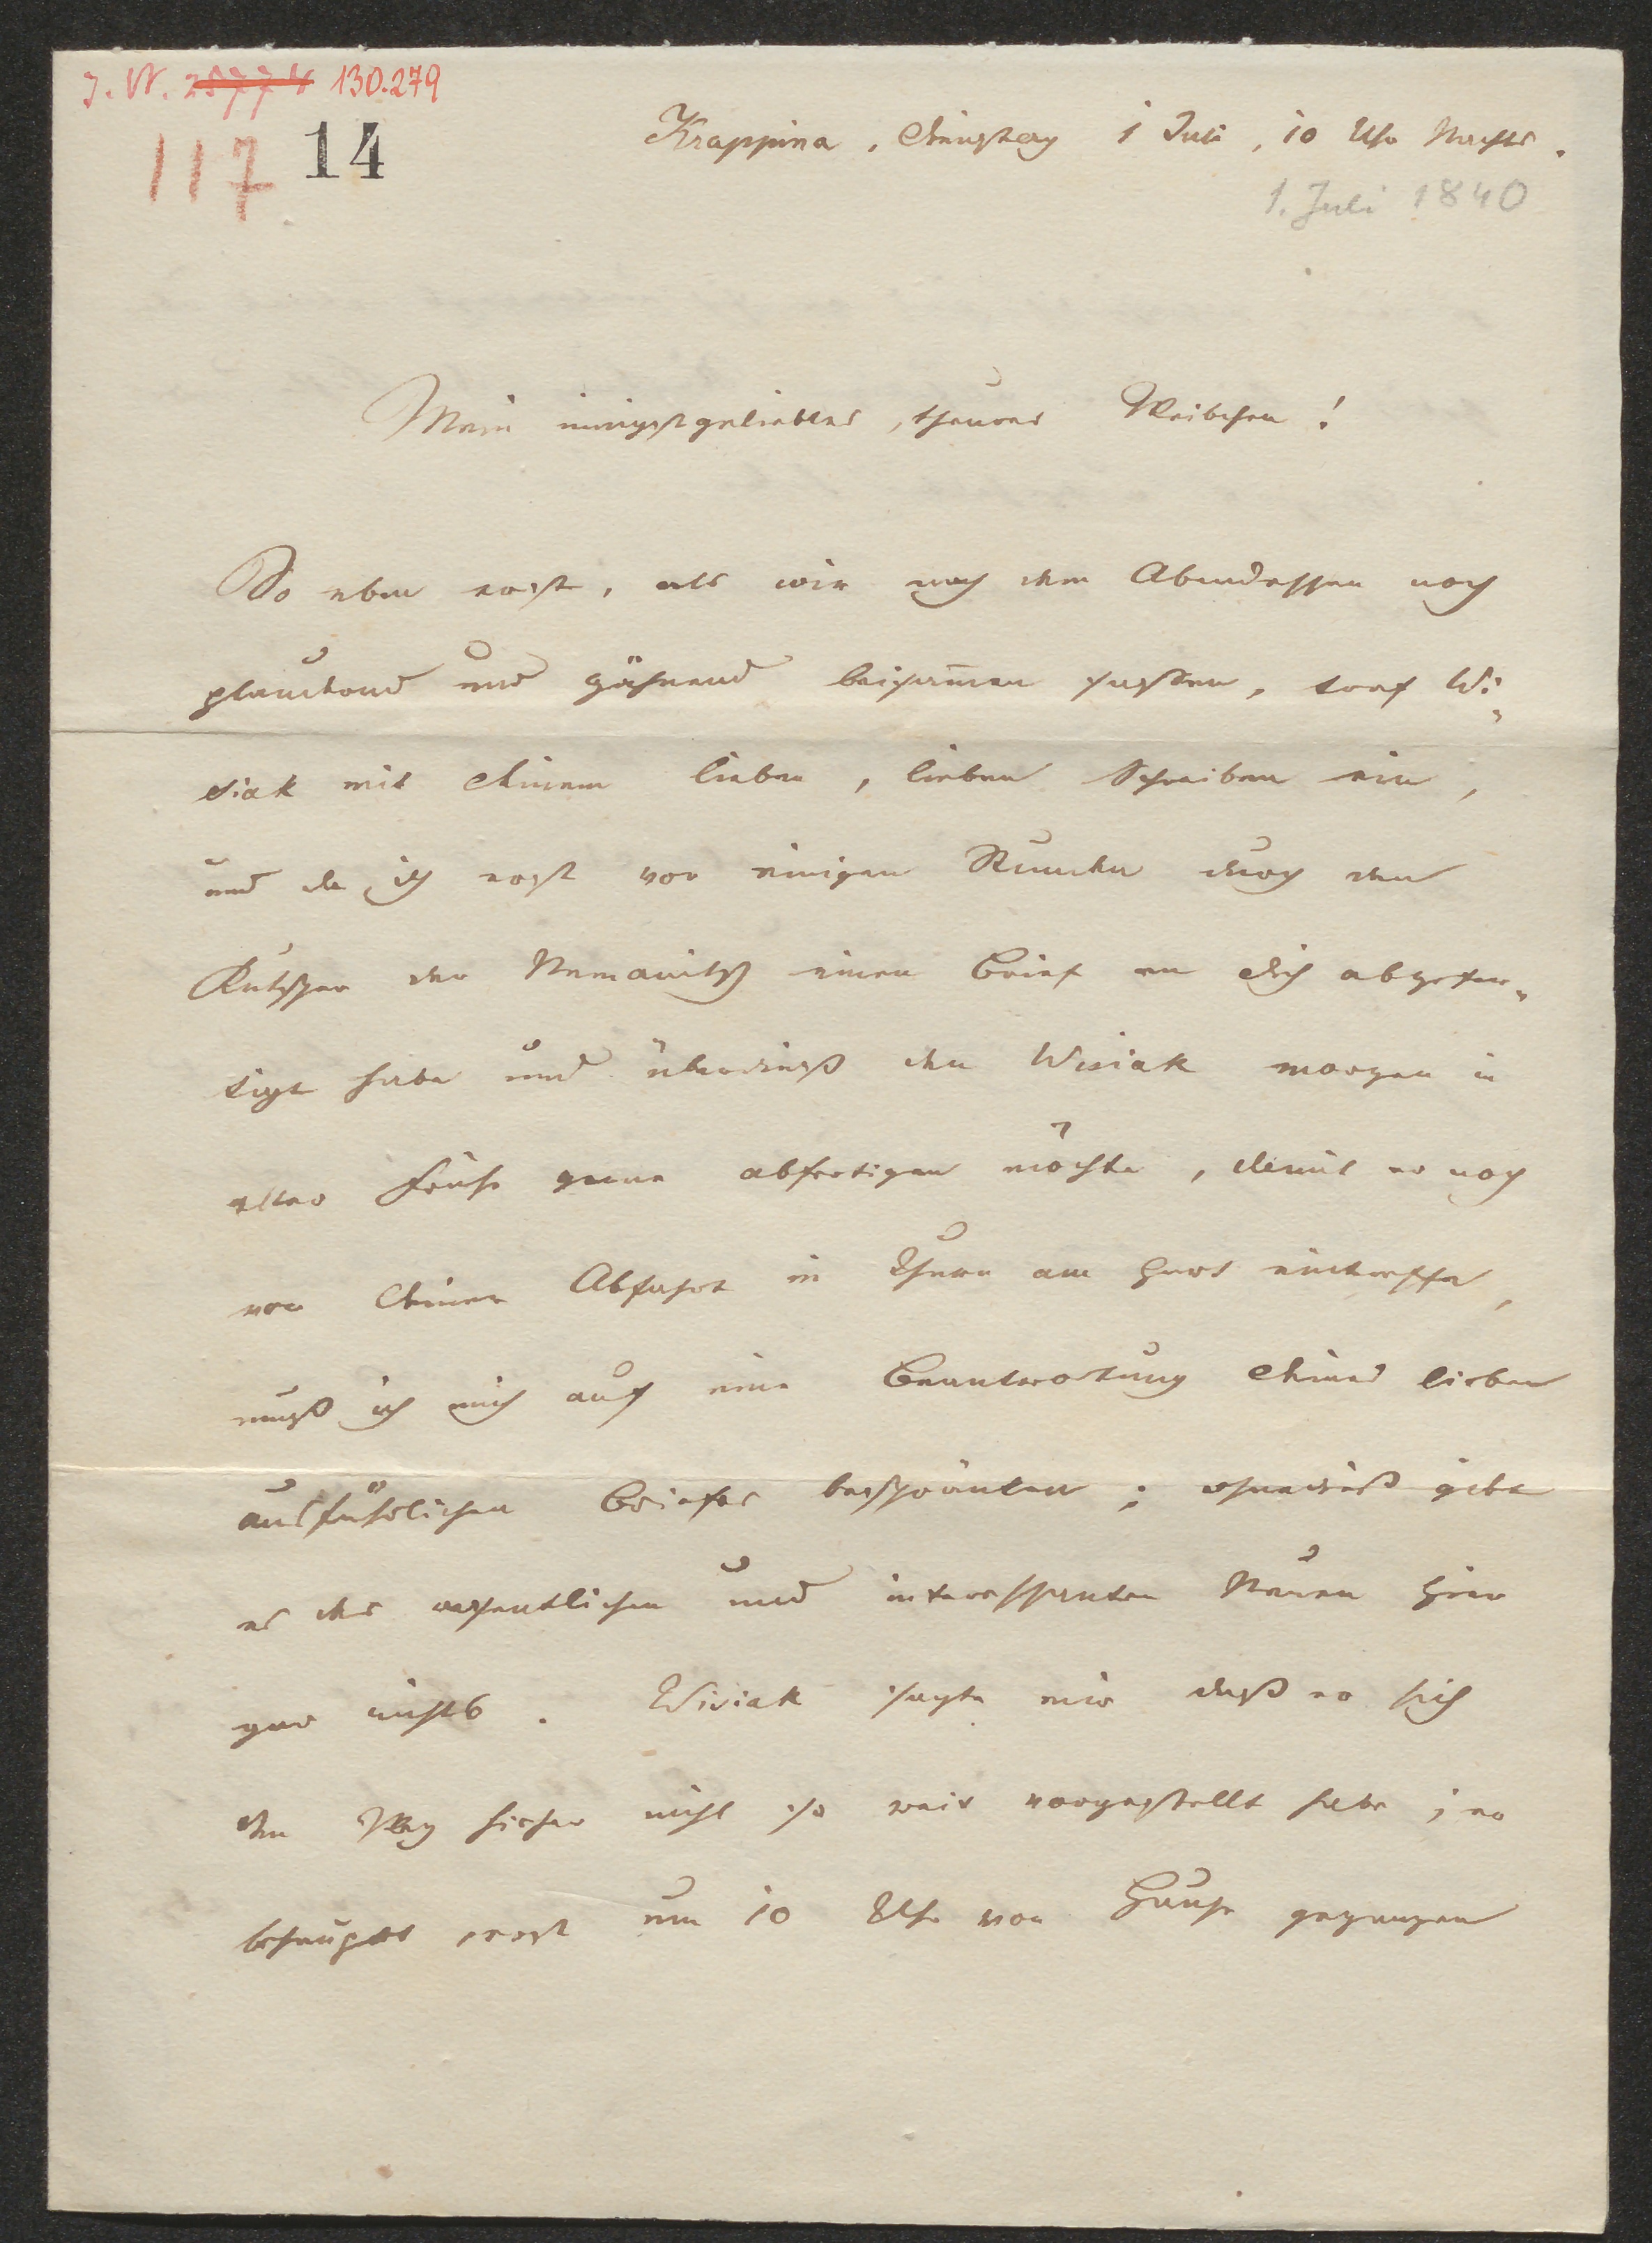 I. N. 130.279
117 14
Krappina, Dienstag 1 Juli, 10 Uhr Nachts.
1. Juli 1840
Mein innigstgeliebtes, theures Weibchen!
So eben erst, als wir nach dem Abendessen noch
plaudernd und gähnend beisam̄en saßen, traf Wi„
siak mit Deinem lieben, lieben Schreiben ein,
und da ich erst vor einigen Stunden durch den
Kutscher der Nemanitsch einen Brief an Dich abgefer„
tigt habe und überdieß den Wisiak morgen in
aller Frühe gerne abfertigen möchte, damit er noch
vor Deiner Abfahrt in Thurn am Hart eintreffe,
muß ich mich auf eine Beantwortung Deines lieben
ausführlichen Briefes beschränken; ohnedieß gibt
es des wesentlichen und interessanten Neuen hier
gar nichts. Wisiak sagte mir daß er sich
den Weg hieher nicht so weit vorgestellt habe; er
behauptet, erst um 10 Uhr von Hause gegangen